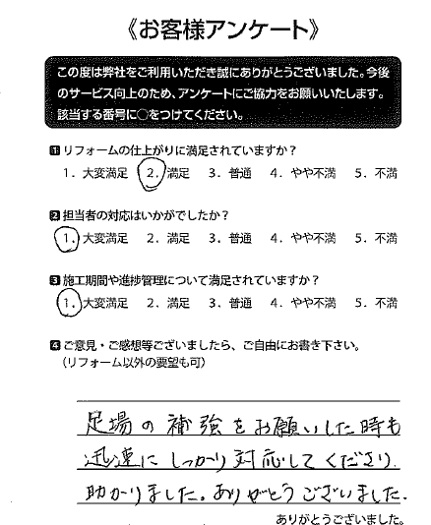 《お客様アンケート》
この度は弊社をご利用いただき誠にありがとうございました。今後
のサービス向上のため、アンケートにご協力をお願いいたします。
該当する番号に○をつけてください。
1 リフォームの仕上がりに満足されていますか？
1. 大変満足 2. 満足 3. 普通 4. やや不満 5. 不満
2 担当者の対応はいかがでしたか？
1. 大変満足 2. 満足 3. 普通 4. やや不満 5. 不満
3 施工期間や進捗管理について満足されていますか？
1. 大変満足 2. 満足 3. 普通 4. やや不満 5. 不満
4 ご意見・ご感想等ございましたら、ご自由にお書き下さい。
（リフォーム以外の要望も可）
足場の補強をお願いした時も
迅速にしっかり対応してくださり
助かりました。ありがとうございました。
ありがとうございました。